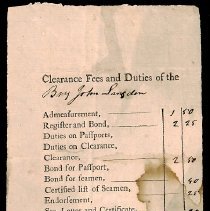 Clearance Fees and Duties of the
Brig John Langdon
Admeasurement, 1 50
Register and Bond, 2 25
Duties on Passports,
Duties on Clearance,
Clearance, 2 50
Bond for Passport,
Bond for seamen,
Certified list of Seamen,
Endorsement,
Sea Letter and Certificate,